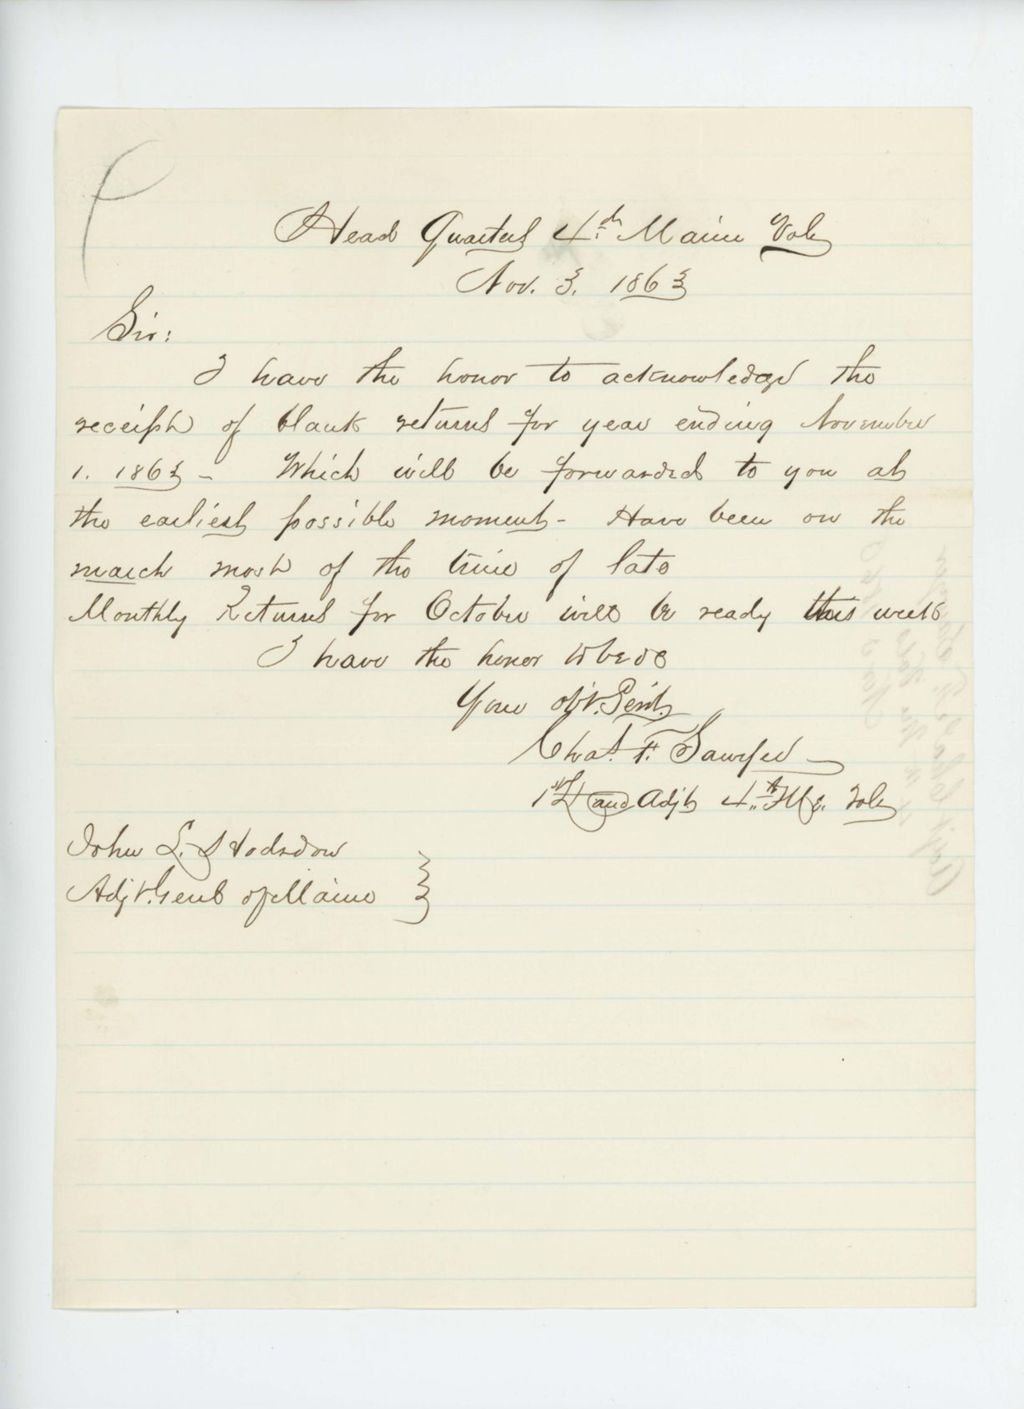 Head Quarters 4.th Maine Vols
Nov. 3. 1863
Sir:
I have the honor to acknowledge the
receipt of blank returns for year ending November
1. 1863 - Which will be forwarded to you at
the earliest possible moment - Have been on the
march most of the time of late
Monthly Returns for October will be ready this week
I have the honor to be
Your obt. Servt.
Chas. F. Sawyer
1st Lt and Adjt 4.th Me. Vols
John L. Hodsdon
Adjt. Genl of Maine